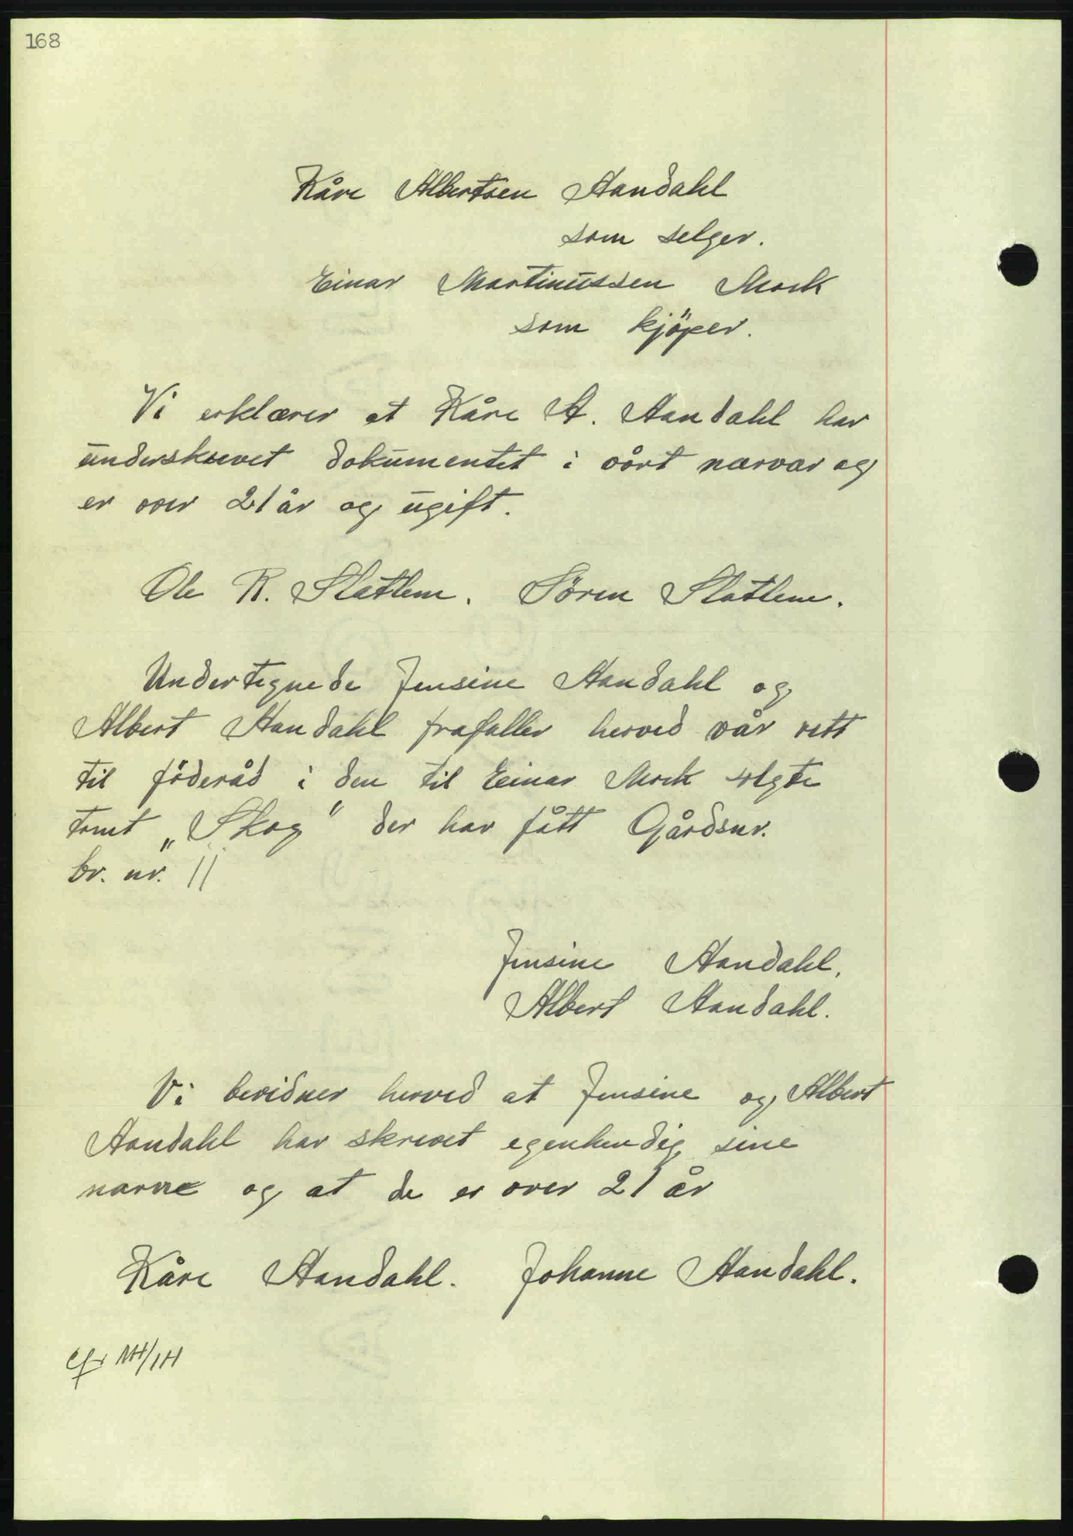 168
Kåre Albertsen Aandahl
som selger.
Einar Martinussen Mork
som kjöper.
Vi erklærer at Kåre A. Aandahl har
underskrevet dokumentet i vårt nærvær og
er over 21 år og ugift.
Ole R. Slatlem. Sören Slatlem.
Undertegnede Jensine Aandahl og
Albert Aandahl frafaller herved vår rett
til föderåd i den til Einar Mork solgte
tomt „Skog" der har fått Gårdsnr.
br. nr. 11
Jensine Aandahl.
Albert Aandahl.
Vi bevidner herved at Jensine og Albert
Aandahl har skrevet egenhendig sine
navne og at de er over 21 år
Kåre Aandahl. Johanne Aandahl.
Cfr NH/IH